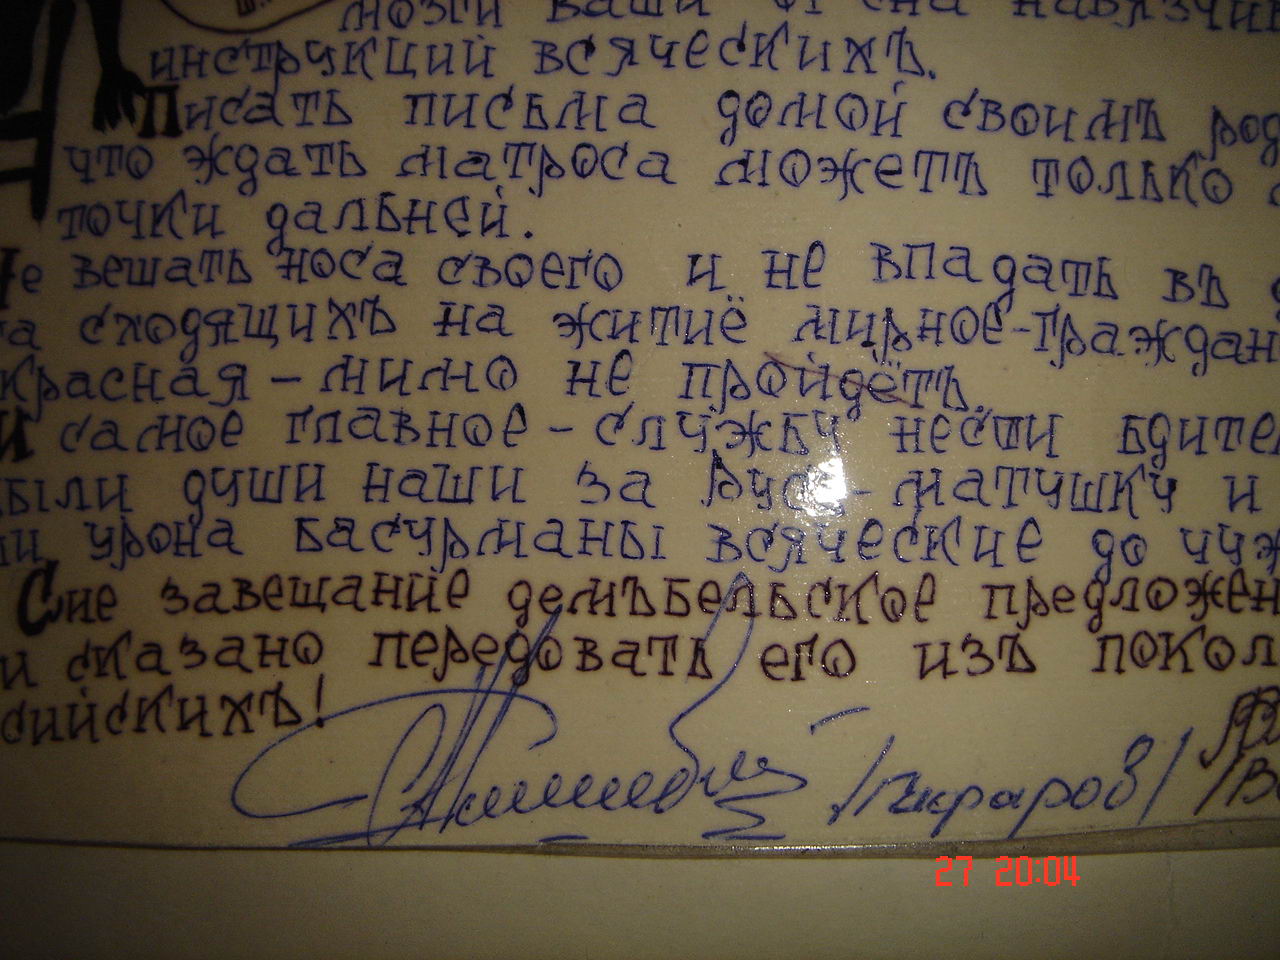 мозги ваши от сна навязчив
инструкций всяческихъ.
Писать письма домой своимъ род
что ждать матроса можетъ только с
точки дальней.
Не вешать носа своего и не впадать въ
на сходящихъ на житиё мирное-граждан
красная - мимо не пройдётъ.
И самое главное - службу нести бдите
были души наши за Русь-матушку и
ли урона басурманы всяческие до чуж
Сие завещание демъбельское предложен
и сказано передовать его изъ покол
сийскихъ!
27 20:04